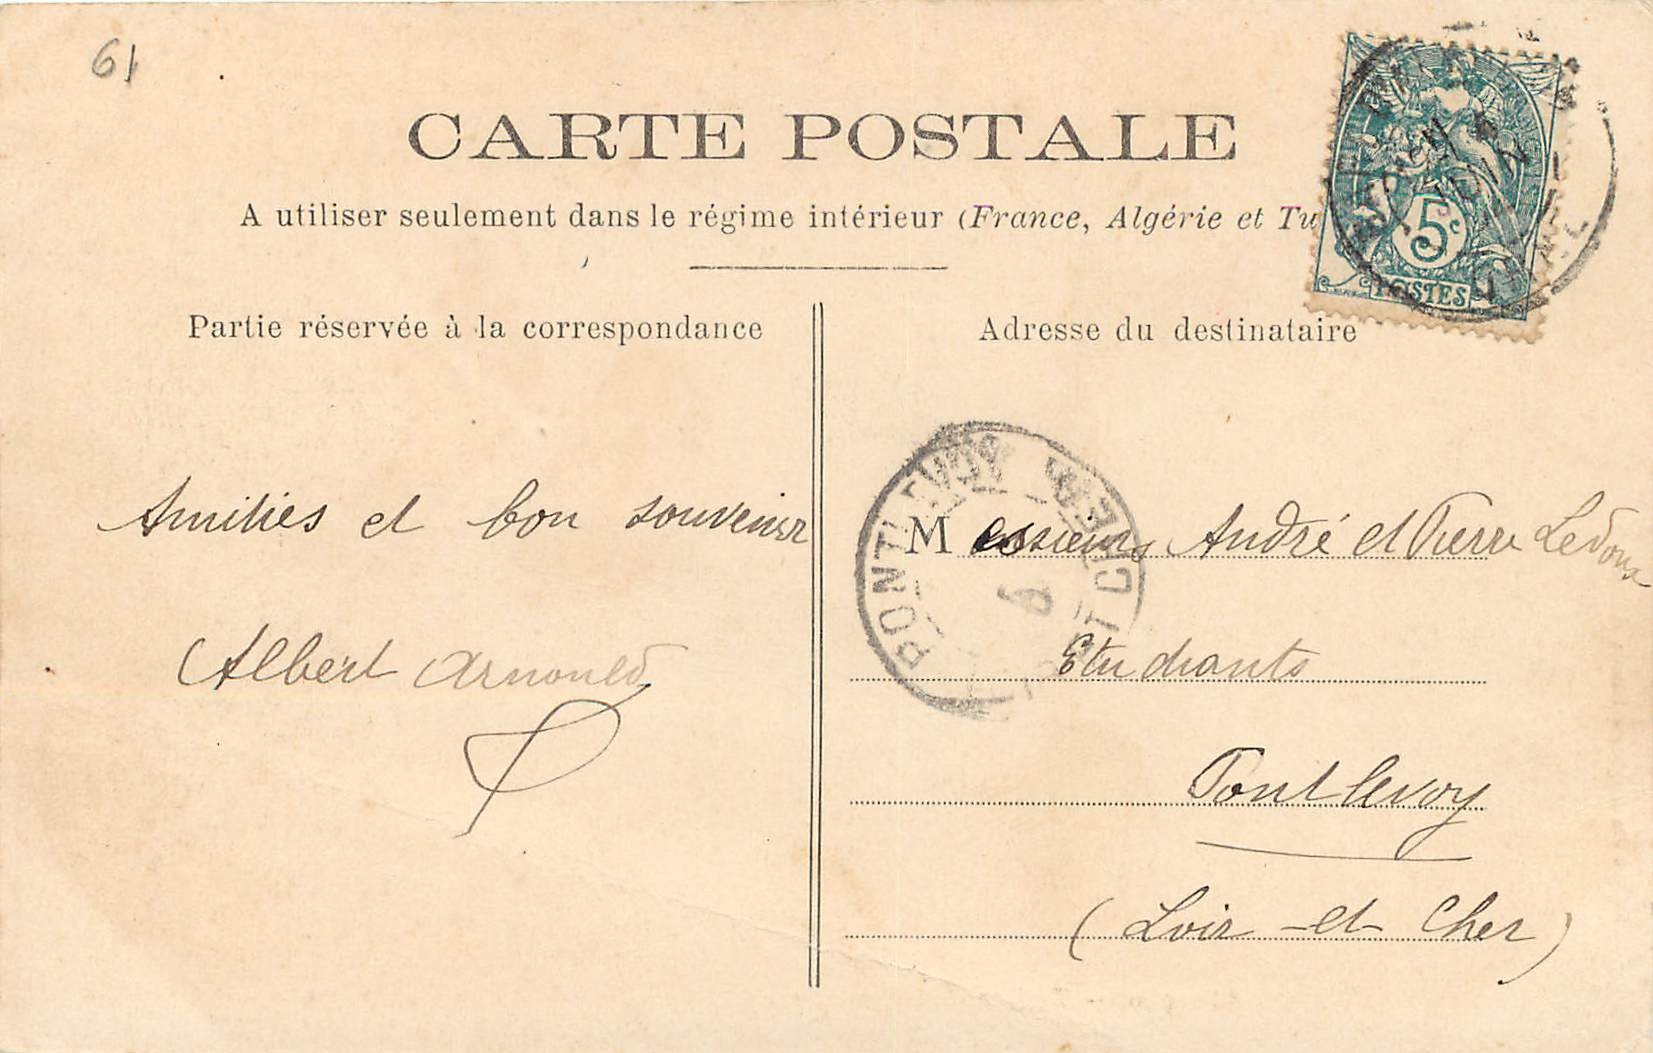 61
CARTE POSTALE
A utiliser seulement dans le régime intérieur (France, Algérie et Tu
Partie réservée à la correspondance
Adresse du destinataire
5c
POSTES
Amitiés et bon souvenir
Albert Arnould
Messieurs André et Pierre Ledoux
Etudiants
Pontlevoy
(Loir-et-Cher)
PONTLEVOY
LOIR ET CHER
6
JUIN